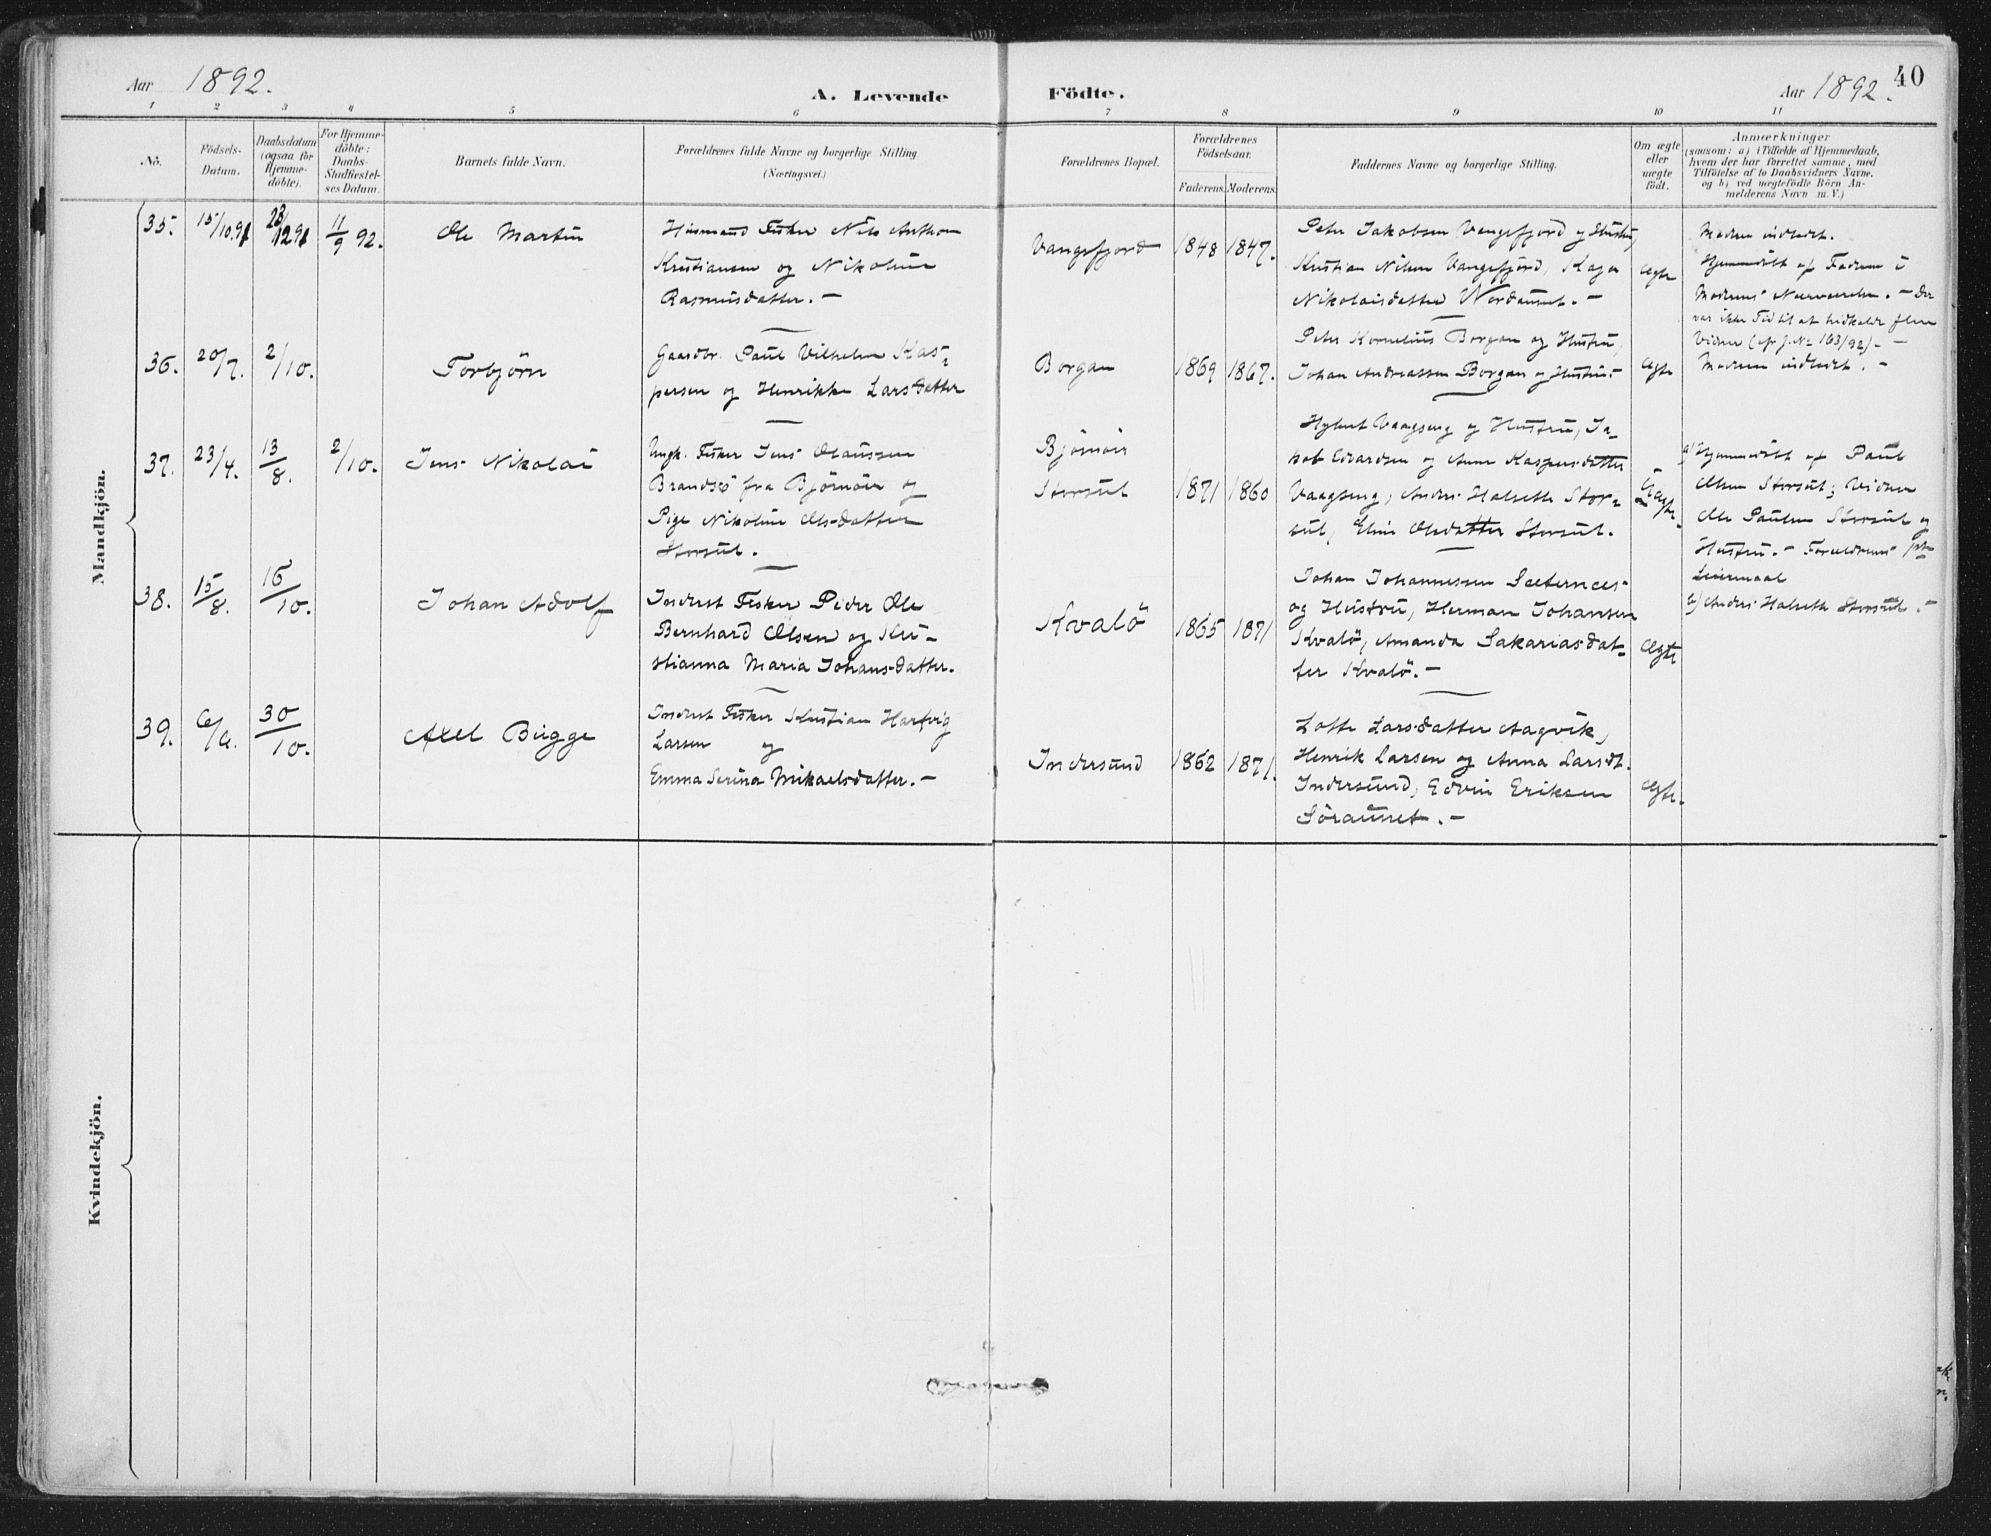 Aar 1892.
A. Levende Födte.
Aar 1892.
40
1 2 3 4 5 6 7 8 9 10 11
No.
Födsels-Datum.
Daabsdatum (ogsaa for Hjemme-döbte).
For Hjemme-döbte: Daabs-Stadfæstel-ses Datum.
Barnets fulde Navn.
Forældrenes fulde Navne og borgerlige Stilling
(Næringsvei.)
Forældrenes Bopæl.
Forældrenes Födselsaar.
Faderens. Moderens.
Faddernes Navne og borgerlige Stilling.
Om ægte eller uægte födt.
Anmærkninger
(saasom: a) i Tilfælde af Hjemmedaab,
hvem der har forrettet samme, med
Tilföielse af to Daabsvidners Navne.
og b) ved uægtefödte Börn An-
melderens Navn m. V.)
Mandkjön.
35. 15/10.91 28/12 91 11/9 92. Ole Martin
Husmand Fisker Nils Anthon
Kristiansen og Nikoline
Rasmusdatter. —
Vangsfjord 1848 1847.
Peter Jakobsen Vangsfjord og Hustru,
Kristian Nilsen Vangsfjord, Kaja
Nikolaisdatter Nordaunet. —
Ægte
Modren indledet.
Hjemmedöbt af Fadren i
Modrens Nærværelse. — Der
var ikke Tid til at tilkalde flere
Vidner (cfr J. No 163/92) —
36. 20/7. 2/10. Torbjörn
Gaardbr. Paul Vilhelm Kas-
persen og Henrikke Larsdatter
Borgan 1869 1867.
Peter Kornelius Borgan og Hustru,
Johan Andreassen Borgan og Hustru
Ægte
Modren indledet. —
37. 23/4. 13/8. 2/10. Jens Nikolai
Ungk. Fisker Jens Olaussen
Brandsö fra Björnör og
Pige Nikoline Olsdatter
Storsul.
Björnör
Storsul 1871 1860
Vaagseng og Hustru, Ja-
kob Edvardsen og Anne Kaspersdatter
Vaagseng, Anders Halseth Stor-
sul, Eline Olsdatter Storsul.
Uægte.
a) Hjemmedöbt af Paul
Olsen Storsul; Vidner
Ole Paulsen Storsul og
Hustru. — Forældrenes 1ste
Leiermaal
b) Anders Halseth Storsul. —
38. 15/8. 16/10. Johan Adolf
Inderst Fisker Peder Ole
Bernhard Olsen og Kri-
stianna Maria Johansdatter.
Kvalö 1865 1871
Johan Johannessen Sæternes
og Hustru, Herman Johansen
Kvalö, Amanda Sakariasdat-
ter Kvalö. —
Ægte
39. 6/6. 30/10. Axel Bugge
Inderst Fisker Kristian Hartvig
Larsen og
Emma Serina Mikaelsdatter. —
Indersund 1862 1871.
Lotte Larsdatter Aagvik,
Henrik Larsen og Anna Larsdt.
Indersund, Edvin Eriksen
Söraunet. —
Ægte.
Kvindekjön.